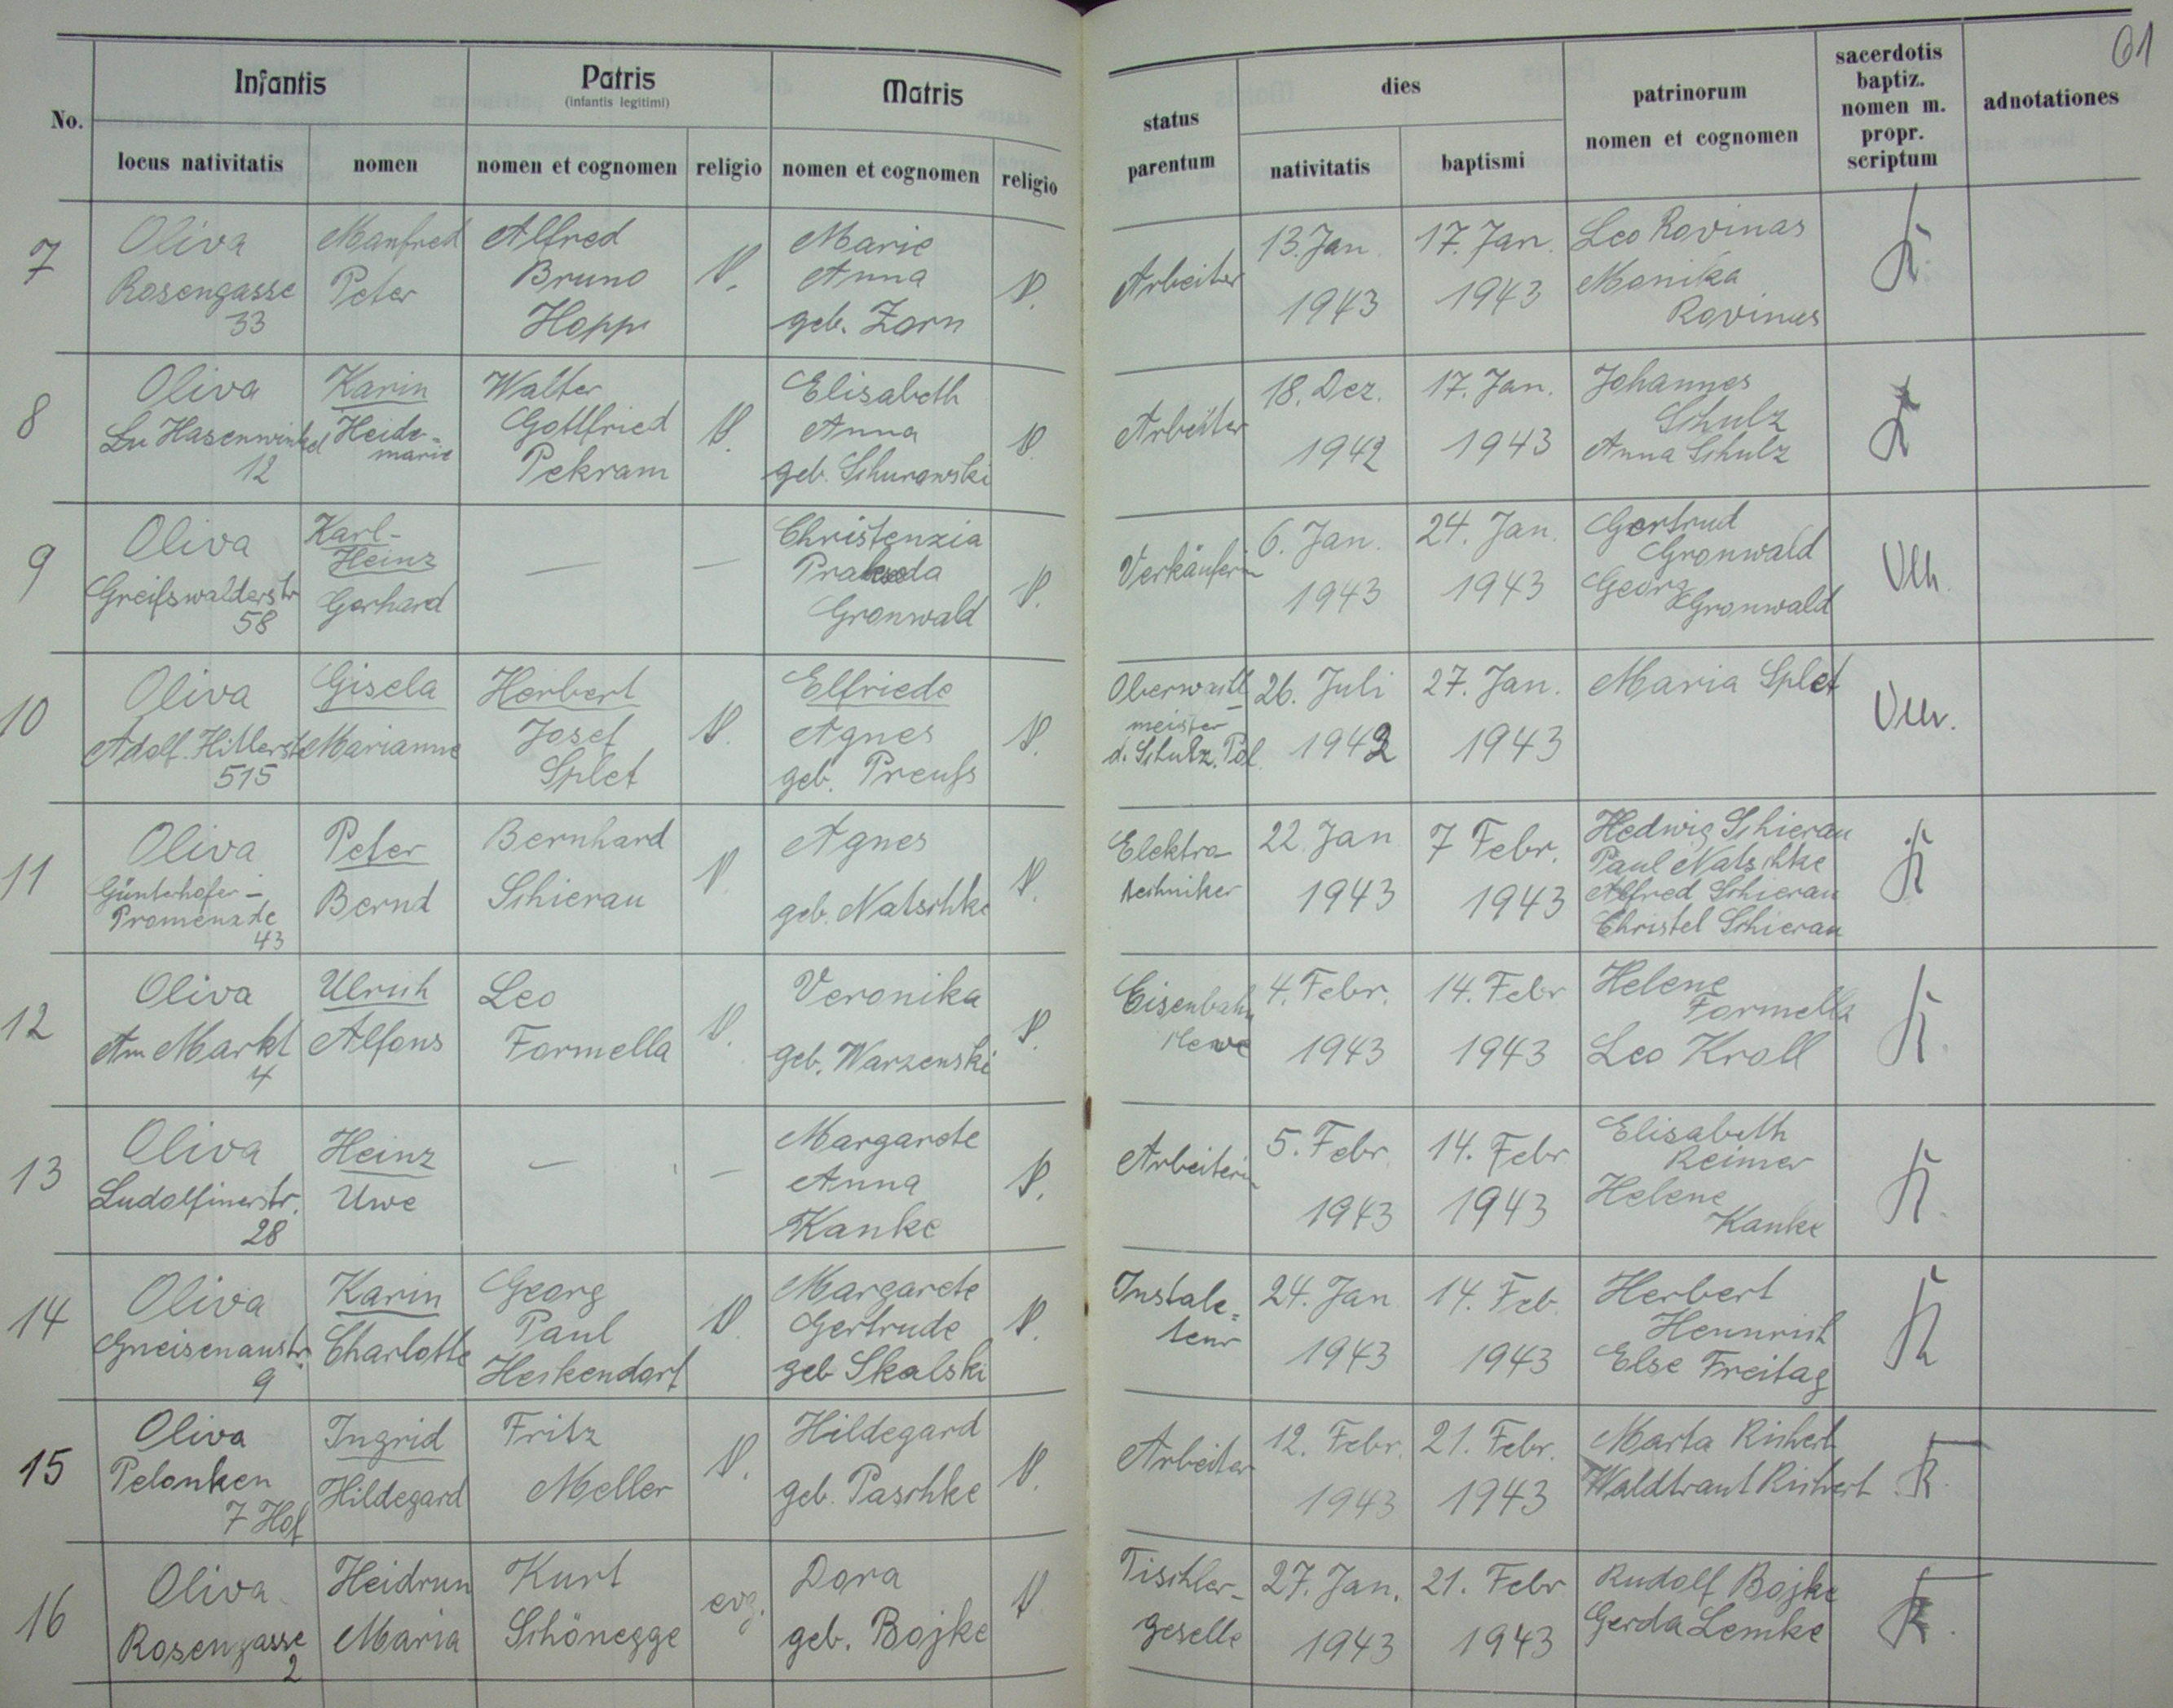 01
Infantis
Patris
(infantis legitimi)
Matris
status
parentum
dies
patrinorum
nomen et cognomen
sacerdotis
baptiz.
nomen m.
propr.
scriptum
adnotationes
No.
locus nativitatis
nomen
nomen et cognomen
religio
nomen et cognomen
religio
nativitatis
baptismi
7
Oliva
Rosengasse
33
Manfred
Peter
Alfred
Bruno
Hoppe
Marie
Anna
geb. Zorn
Arbeiter
13. Jan.
1943
17. Jan.
1943
Leo Rovinas
Monika
Rovinas
8
Oliva
Hasenwinkel
12
Karin
Heide-
marie
Walter
Gottfried
Pekram
Elisabeth
Anna
geb. Schurowski
Arbeiter
18. Dez.
1942
17. Jan.
1943
Johannes
Schulz
Anna Schulz
9
Oliva
Greifswalderstr
58
Karl-
Heinz
Gerhard
—
—
Christenzia
Gronwald
Verkäuferin
6. Jan.
1943
24. Jan.
1943
Gertrud
Gronwald
Georg
Gronwald
10
Oliva
Adolf-Hitlerstr
515
Gisela
Marianne
Herbert
Josef
Splet
Elfriede
Agnes
geb. Preuß
Oberwacht-
meister
d. Schutz. Pol.
26. Juli
1942
27. Jan.
1943
Maria Splet
11
Oliva
Günterhofer-
Promenade
43
Peter
Bernd
Bernhard
Schierau
Agnes
geb. Natschke
Elektro-
techniker
22. Jan
1943
7 Febr.
1943
Hedwig Schierau
Paul Natschke
Alfred Schierau
Christel Schierau
12
Oliva
Am Markt
4
Ulrich
Alfons
Leo
Formella
Veronika
geb. Warzenski
Eisenbahn
4. Febr.
1943
14. Febr
1943
Helene
Formella
Leo Kroll
13
Oliva
Ludolfinerstr.
28
Heinz
Uwe
—
—
Margarete
Anna
Kanke
Arbeiterin
5. Febr.
1943
14. Febr
1943
Elisabeth
Reimer
Helene
Kanke
14
Oliva
Gneisenaustr.
9
Karin
Charlotte
Georg
Paul
Heckendorf
Margarete
Gertrude
geb Skalski
Instala-
teur
24. Jan
1943
14. Feb.
1943
Herbert
Hennrich
Else Freitag
15
Oliva
Pelonken
7 Hof
Ingrid
Hildegard
Fritz
Meller
Hildegard
geb. Paschke
Arbeiter
12. Febr.
1943
21. Febr.
1943
Marta Richert
Waldtraut Richert
16
Oliva
Rosengasse
2
Heidrun
Maria
Kurt
Schönegge
evg.
Dora
geb. Bojke
Tischler-
geselle
27. Jan.
1943
21. Febr
1943
Rudolf Bojke
Gerda Lemke